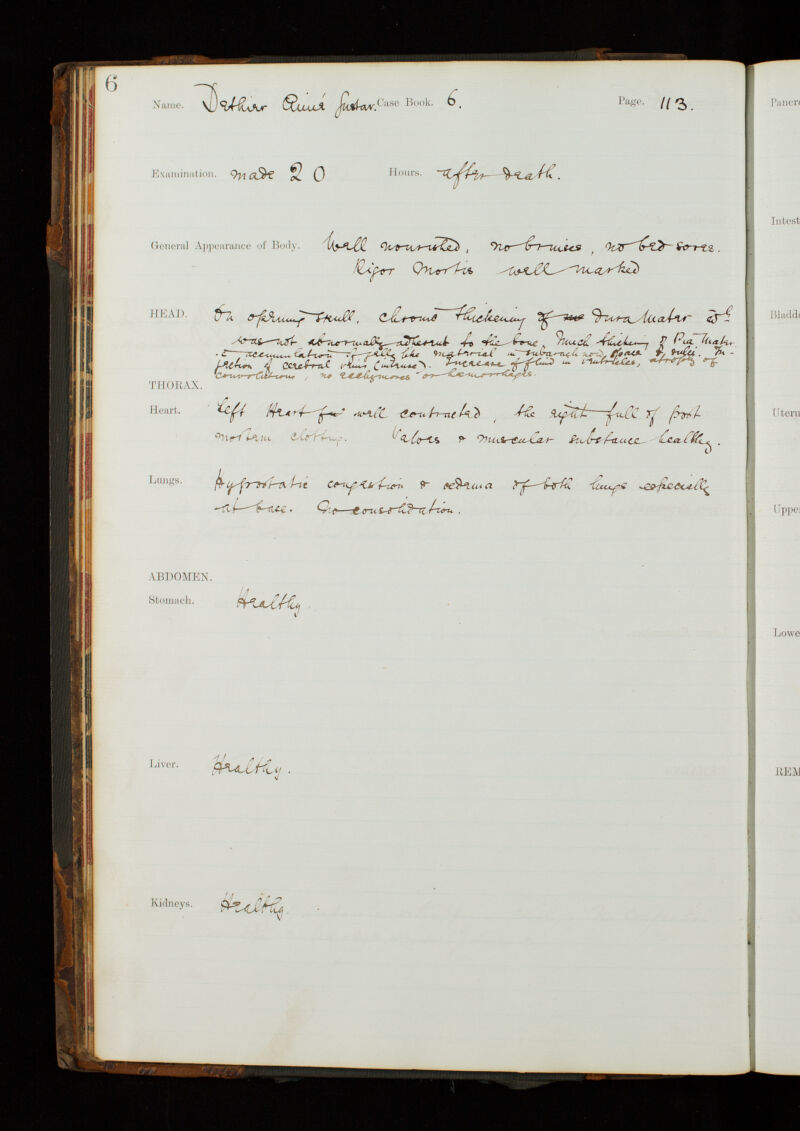 6
Name. Dethier Aimé Gustav. Case Book. 6. Page. 113.
Examination. made 20 Hours. after death.
General Appearance of Body. Well nourished, no bruises, no bed sores.
Rigor Mortis well marked
HEAD. On opening skull, chronic thickening of Dura Mater wh.
was not abnormally adherent to the bone. Much thickening of Pia Mater
& accumulation of jelly like material in subarachnoid space & sulci. In-
jection of cerebral veins (intense). Increase of fluid in ventricles, atrophy of
convolutions, no ecchymoses or hæmorrhages.
THORAX.
Heart. Left Heart well contracted, the right full of post
mortem clotting. Valves & muscular substance healthy.
Lungs. Hypostatic congestion & oedema of both lungs especially
at base. No consolidation.
ABDOMEN.
Stomach. Healthy
Liver. Healthy.
Kidneys. Healthy.
Pancre
Intest
Bladd
Uteru
Uppe
Lowe
REM